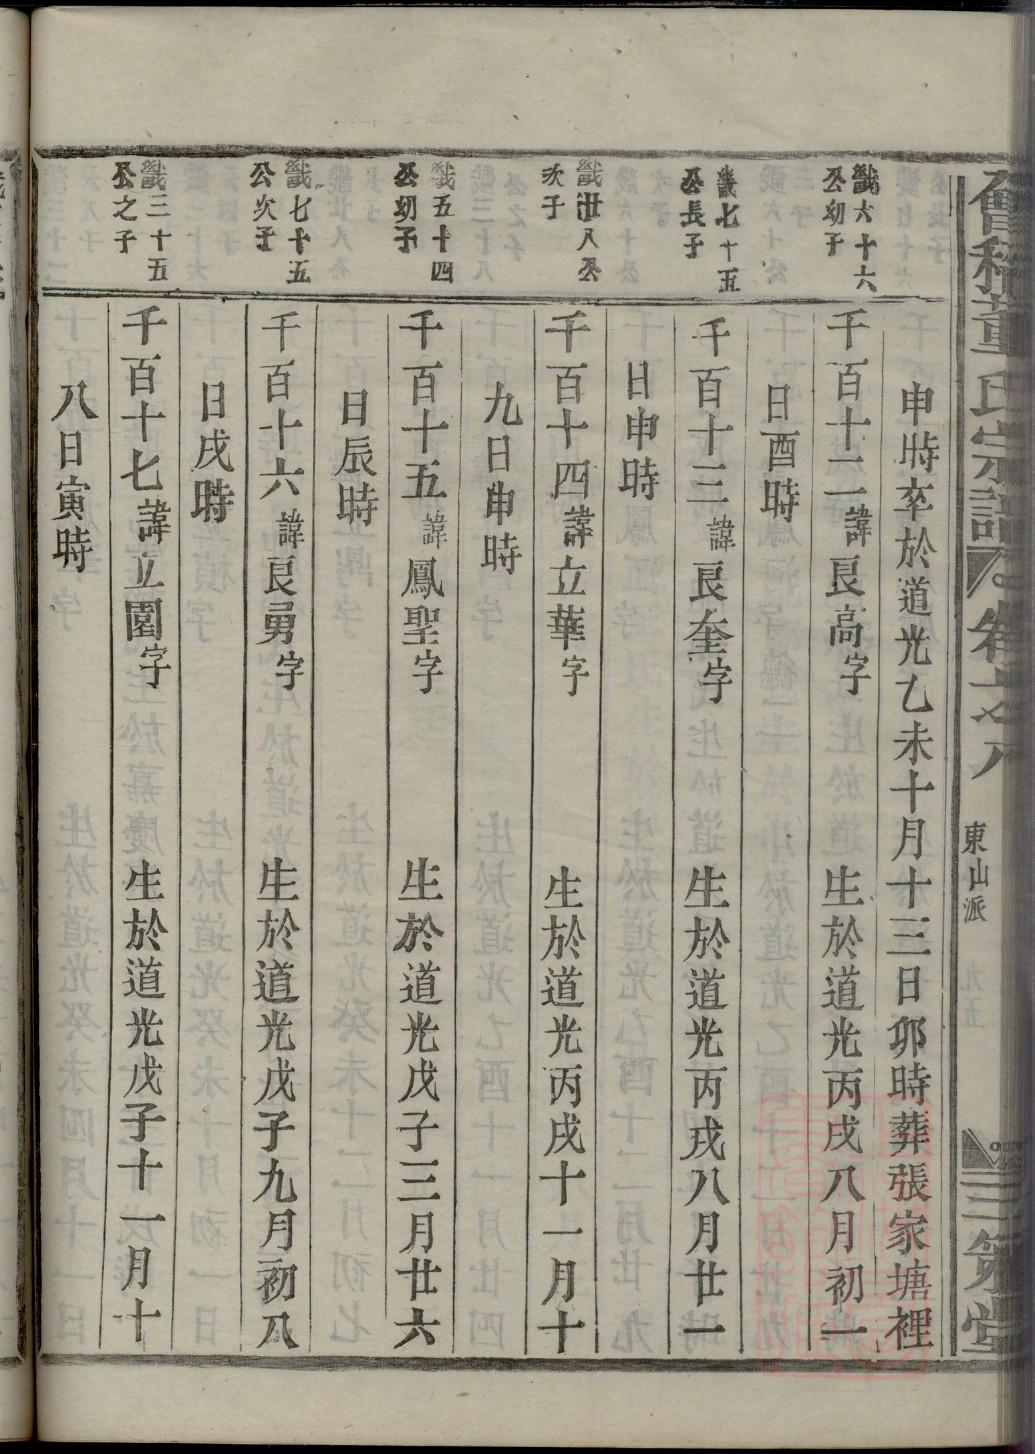 會稽董氏宗譜 卷之八 東山派 三策堂
申時卒於道光乙未十月十三日卯時葬張家塘裡
戩六十六
公幼子
千百十二諱良高字 生於道光丙戌八月初一
日酉時
戩七十五
公長子
千百十三諱良奎字 生於道光丙戌八月廿一
日申時
戩廿八公
次子
千百十四諱立華字 生於道光丙戌十一月十
九日申時
戩五十四
公幼子
千百十五諱鳳聖字 生於道光戊子三月廿六
日辰時
戩七十五
公次子
千百十六諱良勇字 生於道光戊子九月初八
日戌時
戩三十五
公之子
千百十七諱立園字 生於道光戊子十一月十
八日寅時